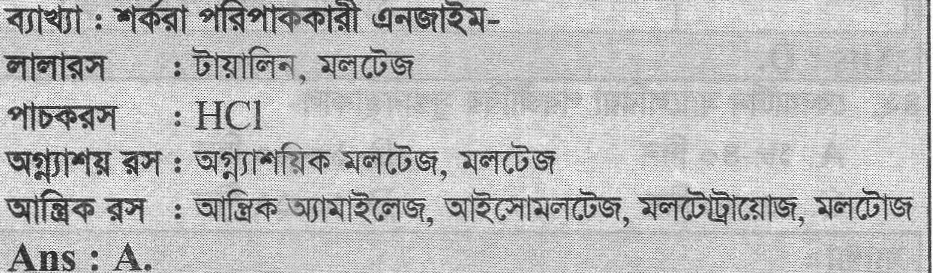 ব্যাখ্যা : শর্করা পরিপাককারী এনজাইম-
লালারস : টায়ালিন, মলটেজ
পাচকরস : HCl
অগ্ন্যাশয় রস : অগ্ন্যাশয়িক মলটেজ, মলটেজ
আন্ত্রিক রস : আন্ত্রিক অ্যামাইলেজ, আইসোমলটেজ, মলটোট্রায়োজ, মলটোজ
Ans : A.